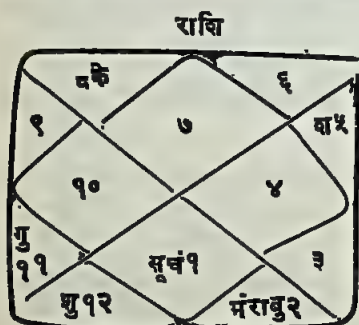 राशि
८के
६
९
७
श५
१०
४
गु
११
सूचं१
३
शु१२
मंराबु२